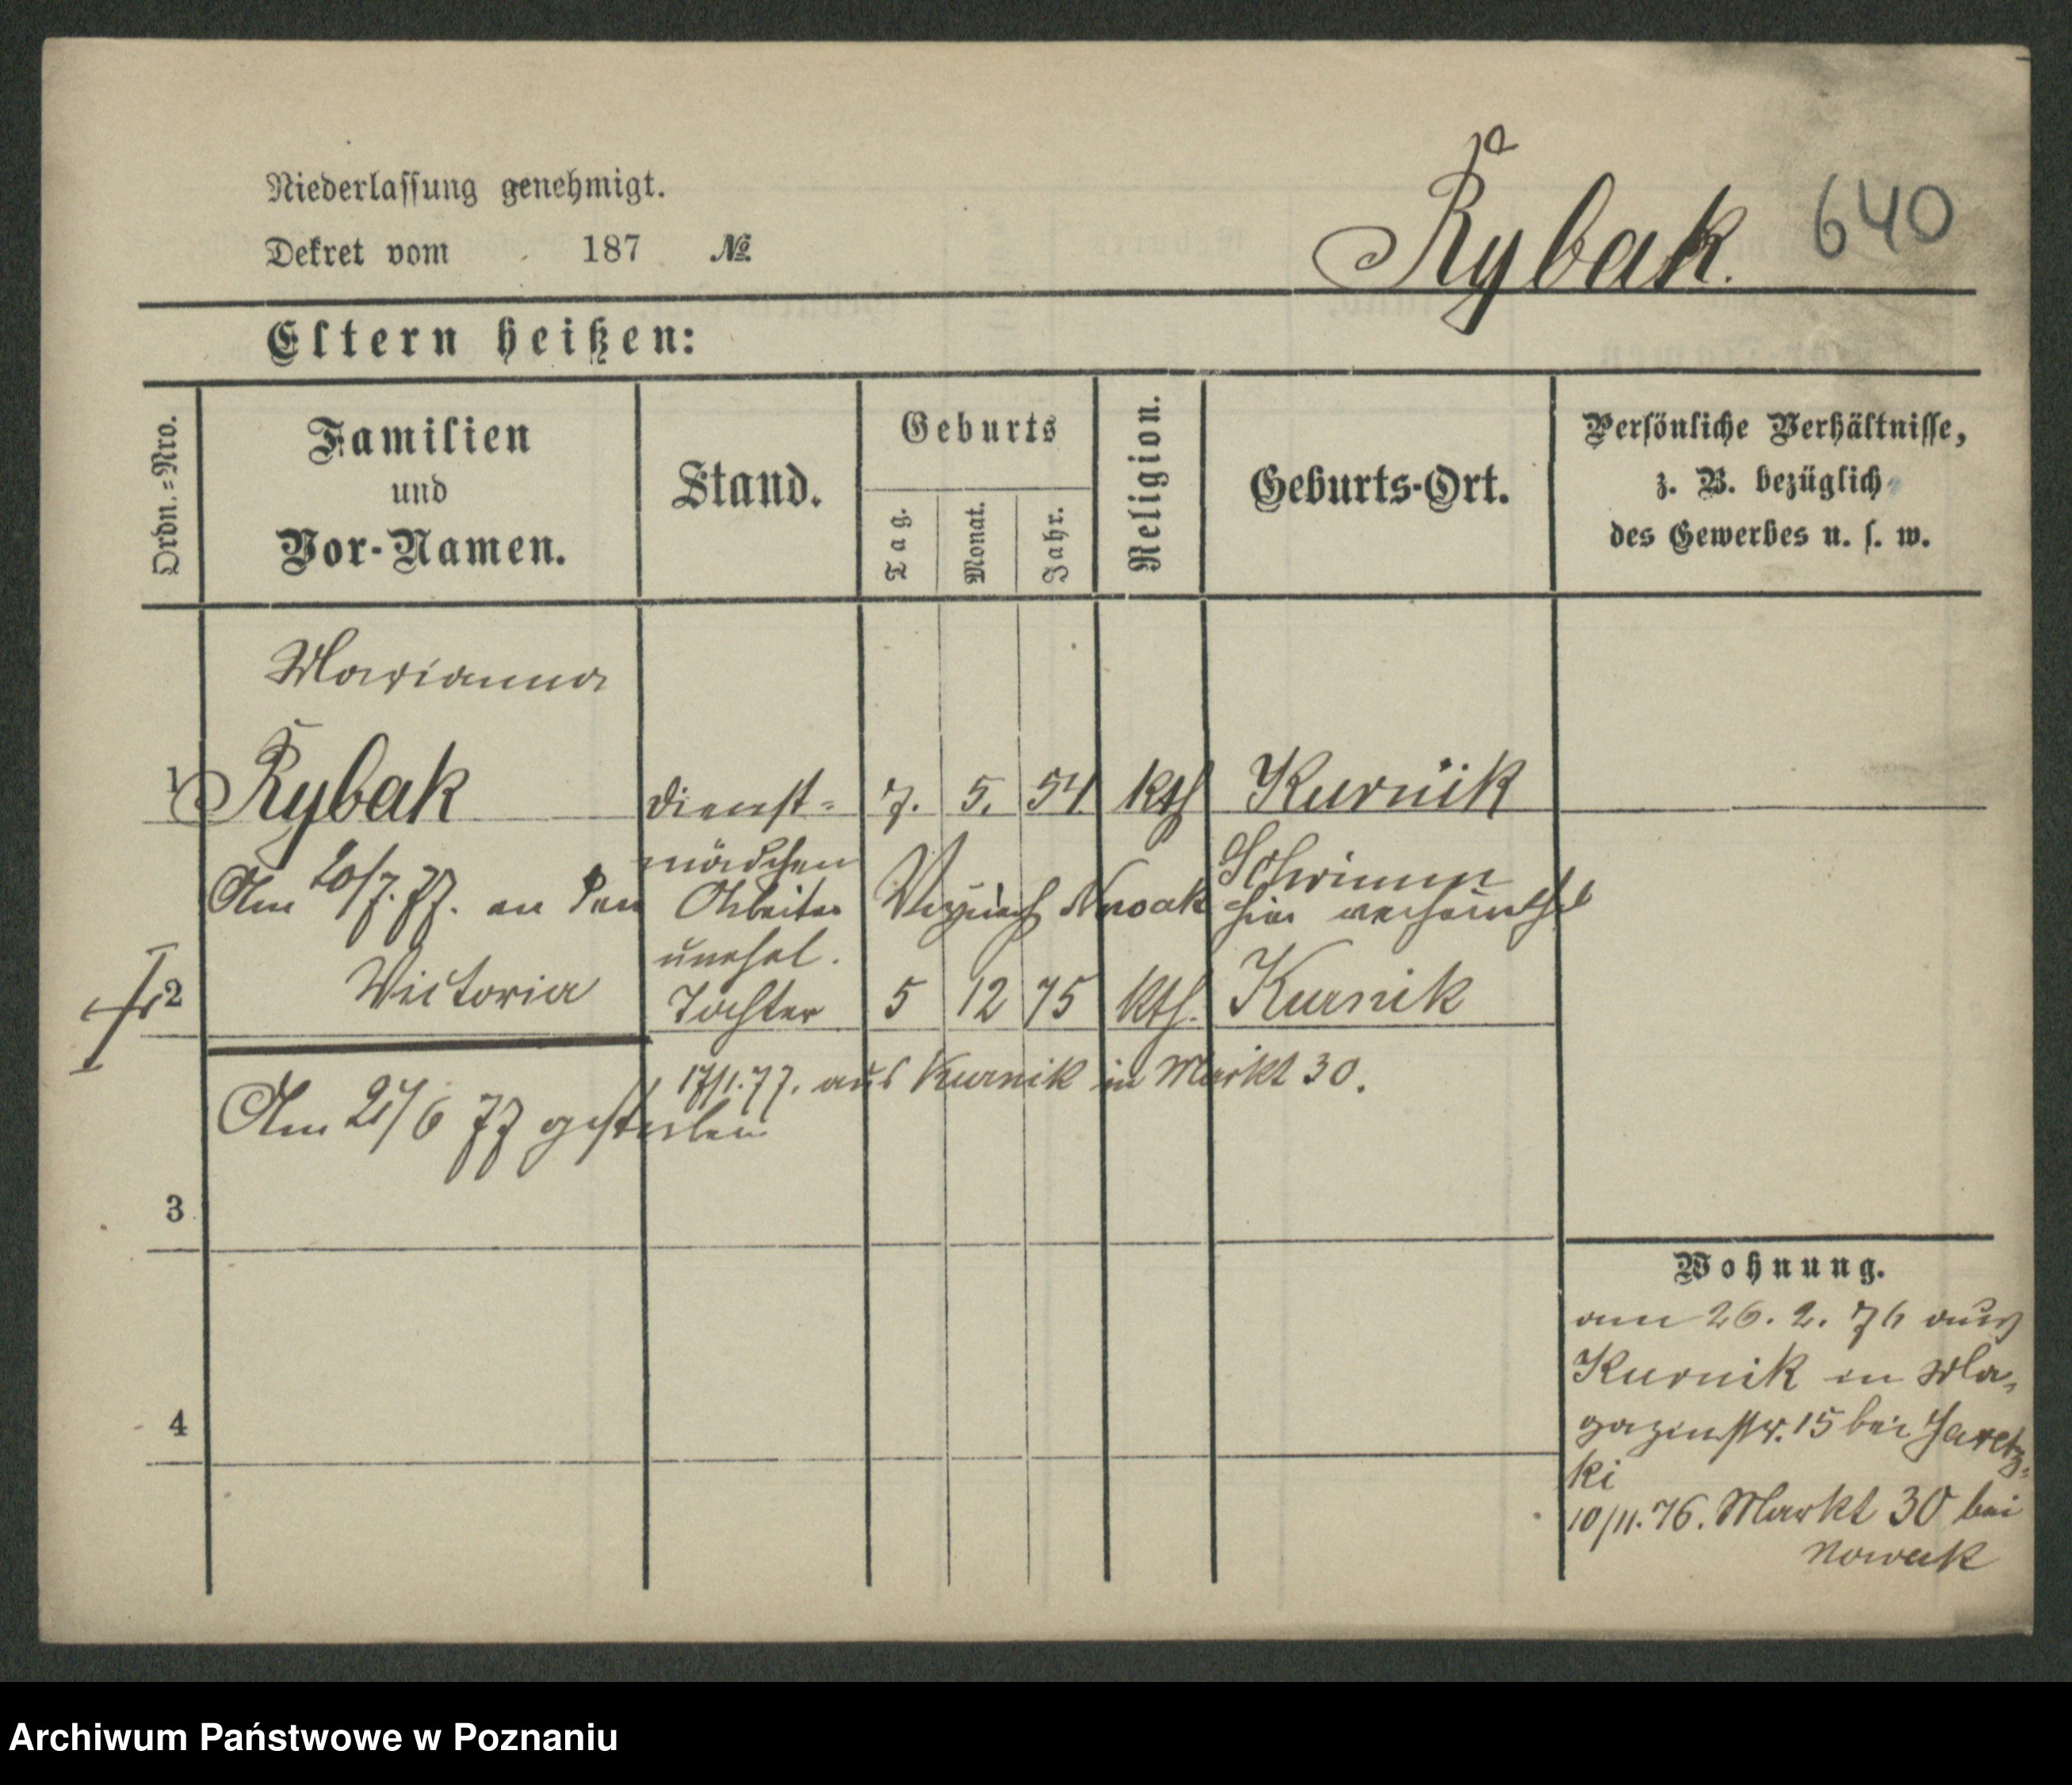 Niederlassung genehmigt.
Dekret vom 187 №
Rybak. 640
Eltern heißen:
Ordn.=Nro.
Familien
und
Vor-Namen.
Stand.
Geburts
Tag.
Monat.
Jahr.
Religion.
Geburts-Ort.
Persönliche Verhältnisse,
z. B. bezüglich
des Gewerbes u. s. w.
Marianna
1 Rybak Dienst= 7. 5. 54. kth Kurnik
mädchen Schrimm
Am 20/7. 77. an den Arbeiter Nowak hier verheirathet
unehel.
2 Victoria Tochter 5 12 75 kth. Kurnik
17/1. 77. aus Kurnik in Markt 30.
Am 21/6 77 gestorben
3
4
Wohnung.
am 26. 2. 76 aus
Kurnik in Ma,
gazinstr. 15 bei Jaretz=
ki
10/11. 76. Markt 30 bei
Nowak
Archiwum Państwowe w Poznaniu